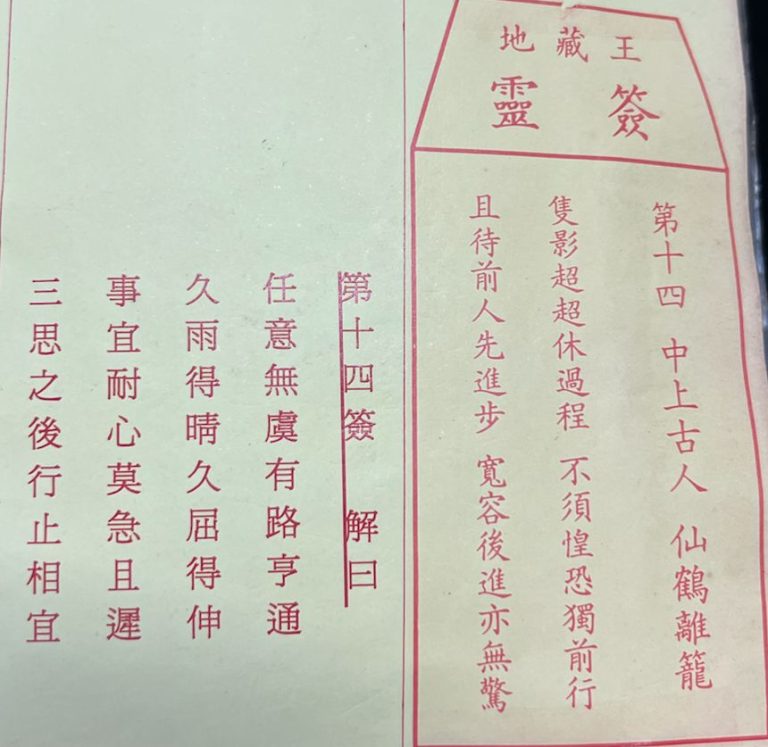 地藏王
靈簽
第十四 中上古人 仙鶴離籠
隻影超超休過程 不須惶恐獨前行
且待前人先進步 寬容後進亦無驚
第十四簽 解曰
任意無虞有路亨通
久雨得晴久屈得伸
事宜耐心莫急且遲
三思之後行止相宜